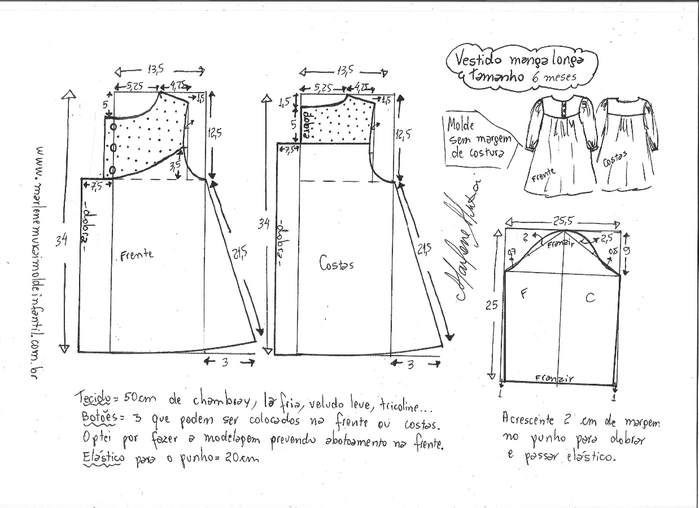 Vestido manga longa
tamanho 6 meses
Molde
sem margem
de costura
Frente
Costas
13,5
5,25
4,75
1,5
5
12,5
3,5
7,5
34
-dobra-
Frente
21,5
3
13,5
5,25
4,75
1,5
1,5
5
dobra
12,5
7,5
34
-dobra-
Costas
21,5
3
25,5
2
2,5
Franzir
0,7
9
25
F
C
Franzir
1
1
www.marlenemukaimoldeinfantil.com.br
Tecido = 50cm de chambray, lã fria, veludo leve, tricoline...
Botões = 3 que podem ser colocados na frente ou costas.
Optei por fazer a modelagem prevendo abotoamento na frente.
Elástico para o punho = 20cm
Acrescente 2 cm de margem
no punho para dobrar
e passar elástico.